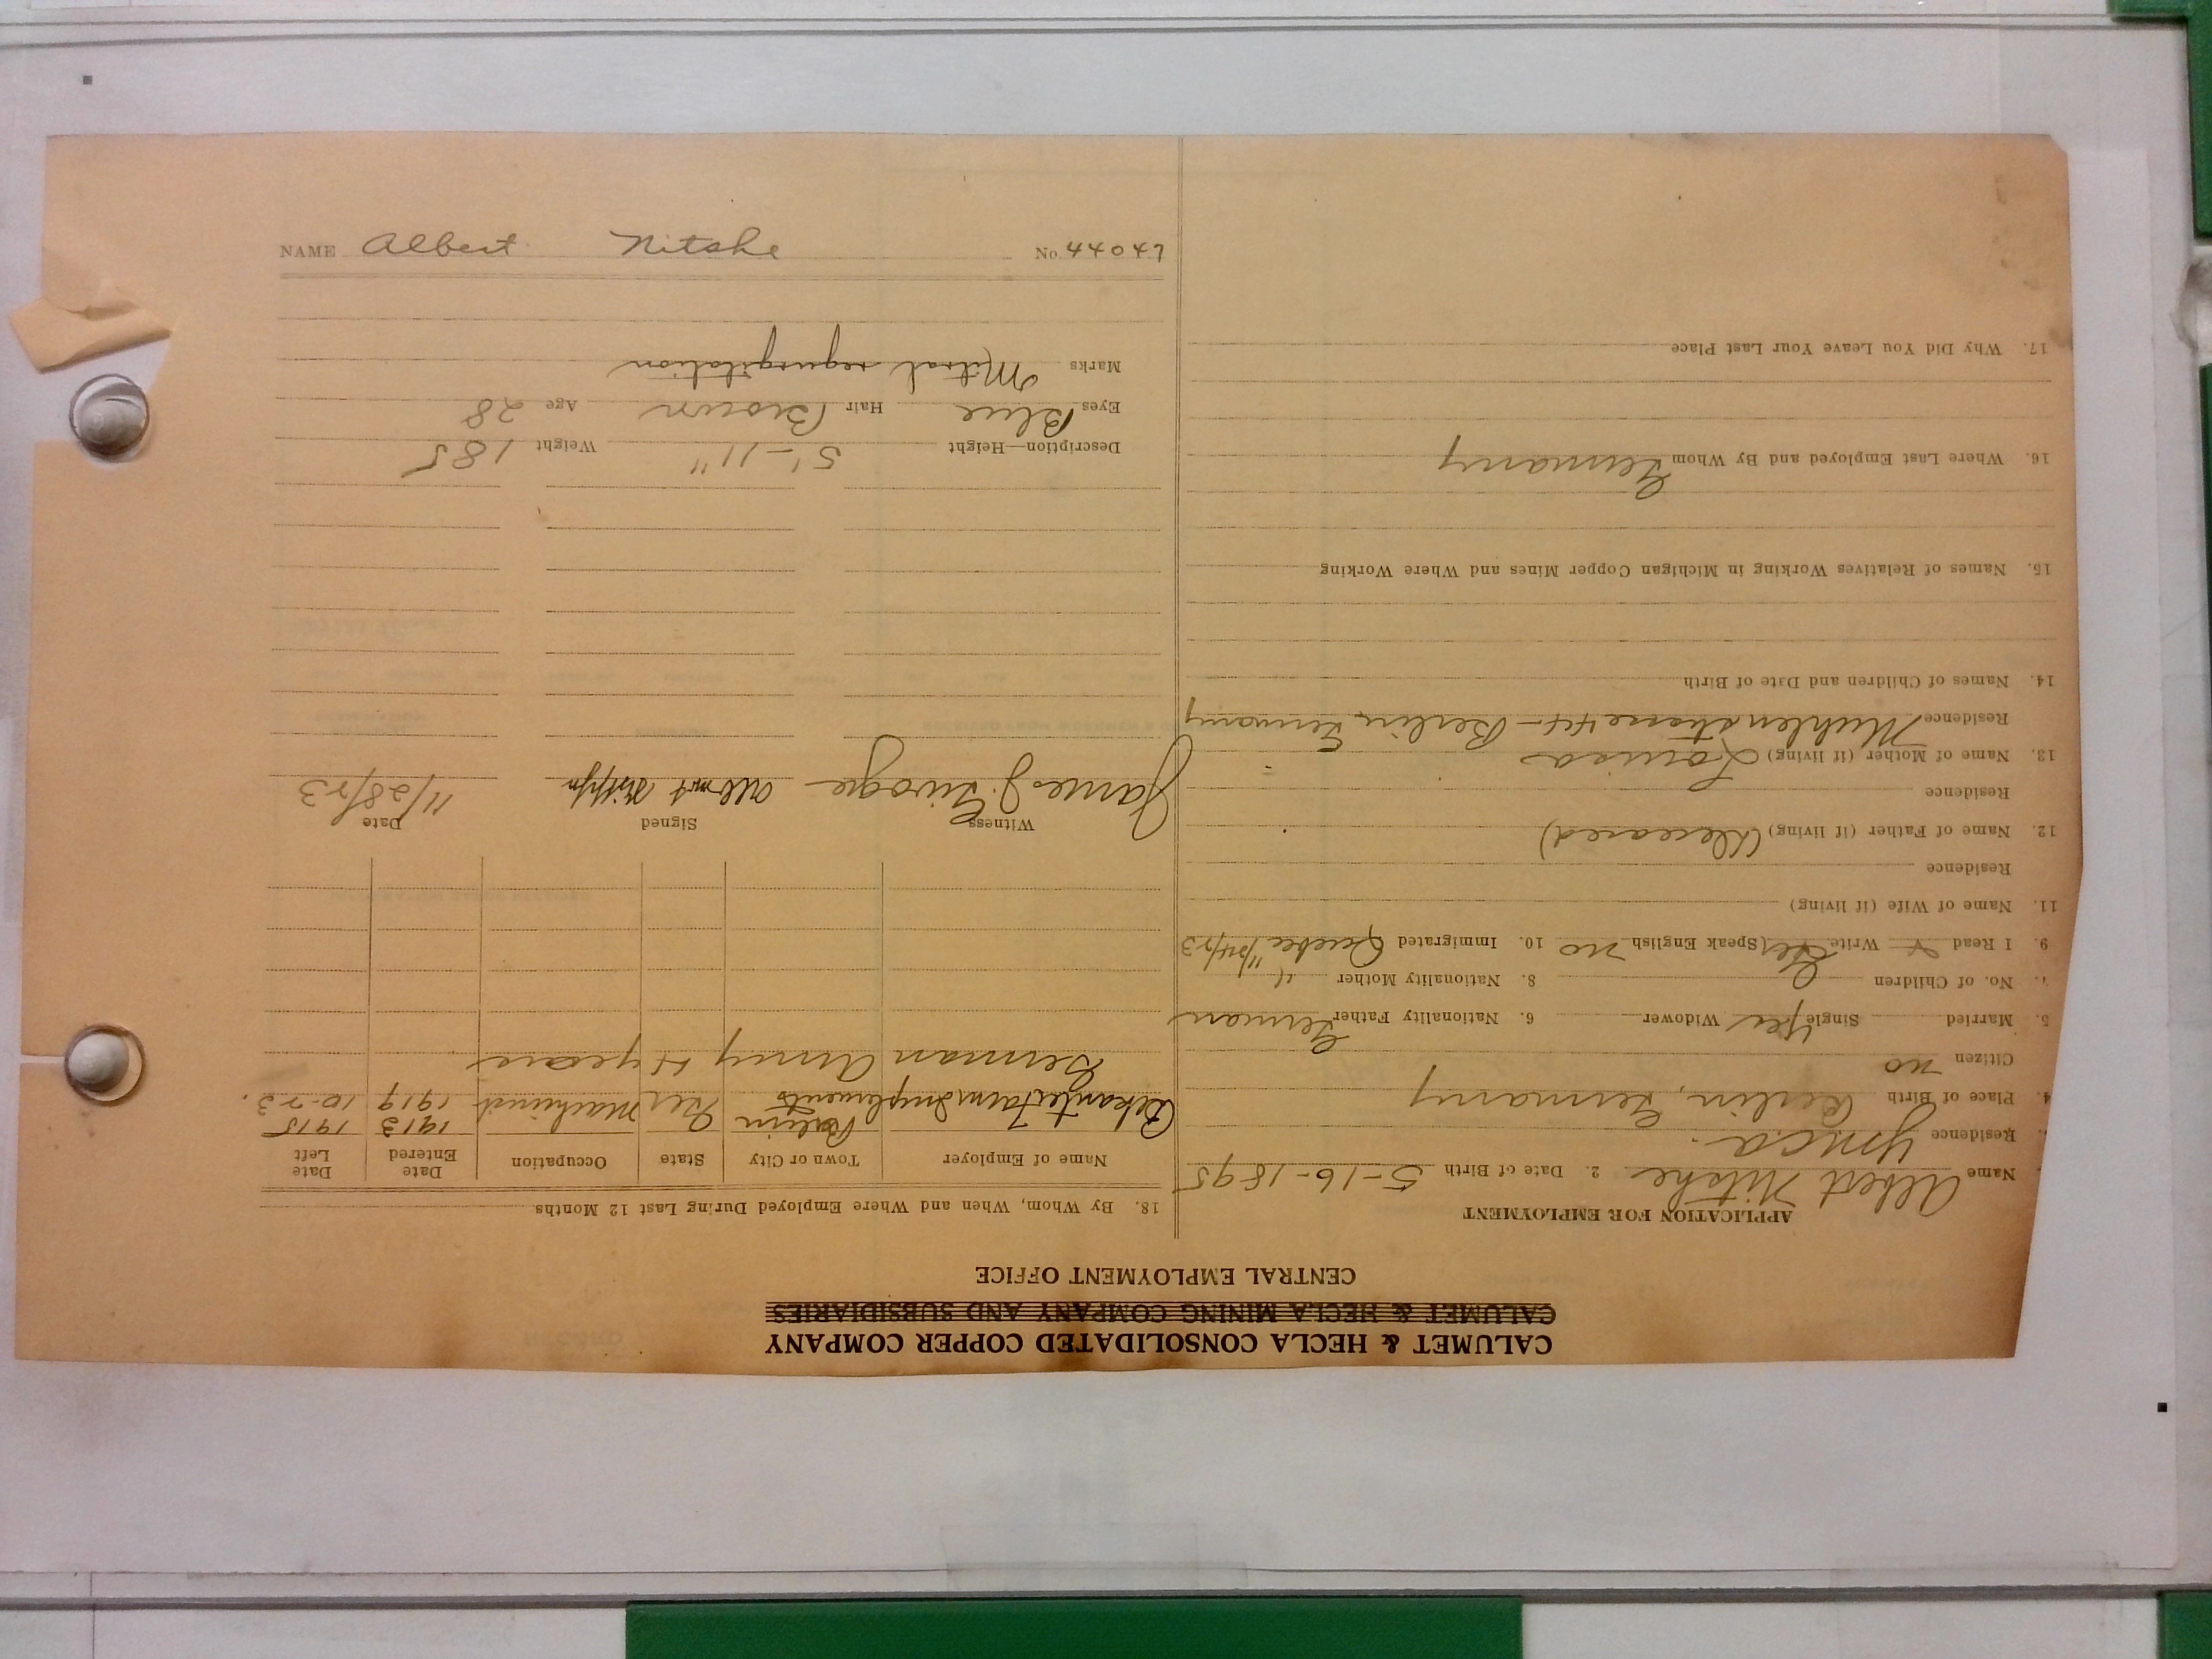 CALUMET & HECLA CONSOLIDATED COPPER COMPANY
CALUMET & HECLA MINING COMPANY AND SUBSIDIARIES
CENTRAL EMPLOYMENT OFFICE
APPLICATION FOR EMPLOYMENT
Name Albert Nitshe 2. Date of Birth 5-16-1895
Residence Ymca.
4. Place of Birth Berlin, Germany
Citizen no
5. Married Single Yes Widower 6. Nationality Father German
7. No. of Children 8. Nationality Mother "
9. I Read Write Ger Speak English no 10. Immigrated Quebec 11/24/23
11. Name of Wife (if living)
Residence
12. Name of Father (if living) (Deceased)
Residence
13. Name of Mother (if living) Louisa
Residence Muhlenstrasse 44 - Berlin, Germany
14. Names of Children and Date of Birth
15. Names of Relatives Working in Michigan Copper Mines and Where Working
16. Where Last Employed and By Whom Germany
17. Why Did You Leave Your Last Place
18. By Whom, When and Where Employed During Last 12 Months
Name of Employer Town or City State Occupation Date Entered Date Left
Berlin Ger 1913 1915
Farm Implements Machinist 1919 10-23.
German Army 4 years
Witness Signed Date
James J. 11/28/23
Description—Height 5'-11" Weight 185
Eyes Blue Hair Brown Age 28
Marks Mitral regurgitation
NAME Albert Nitshe No. 44047